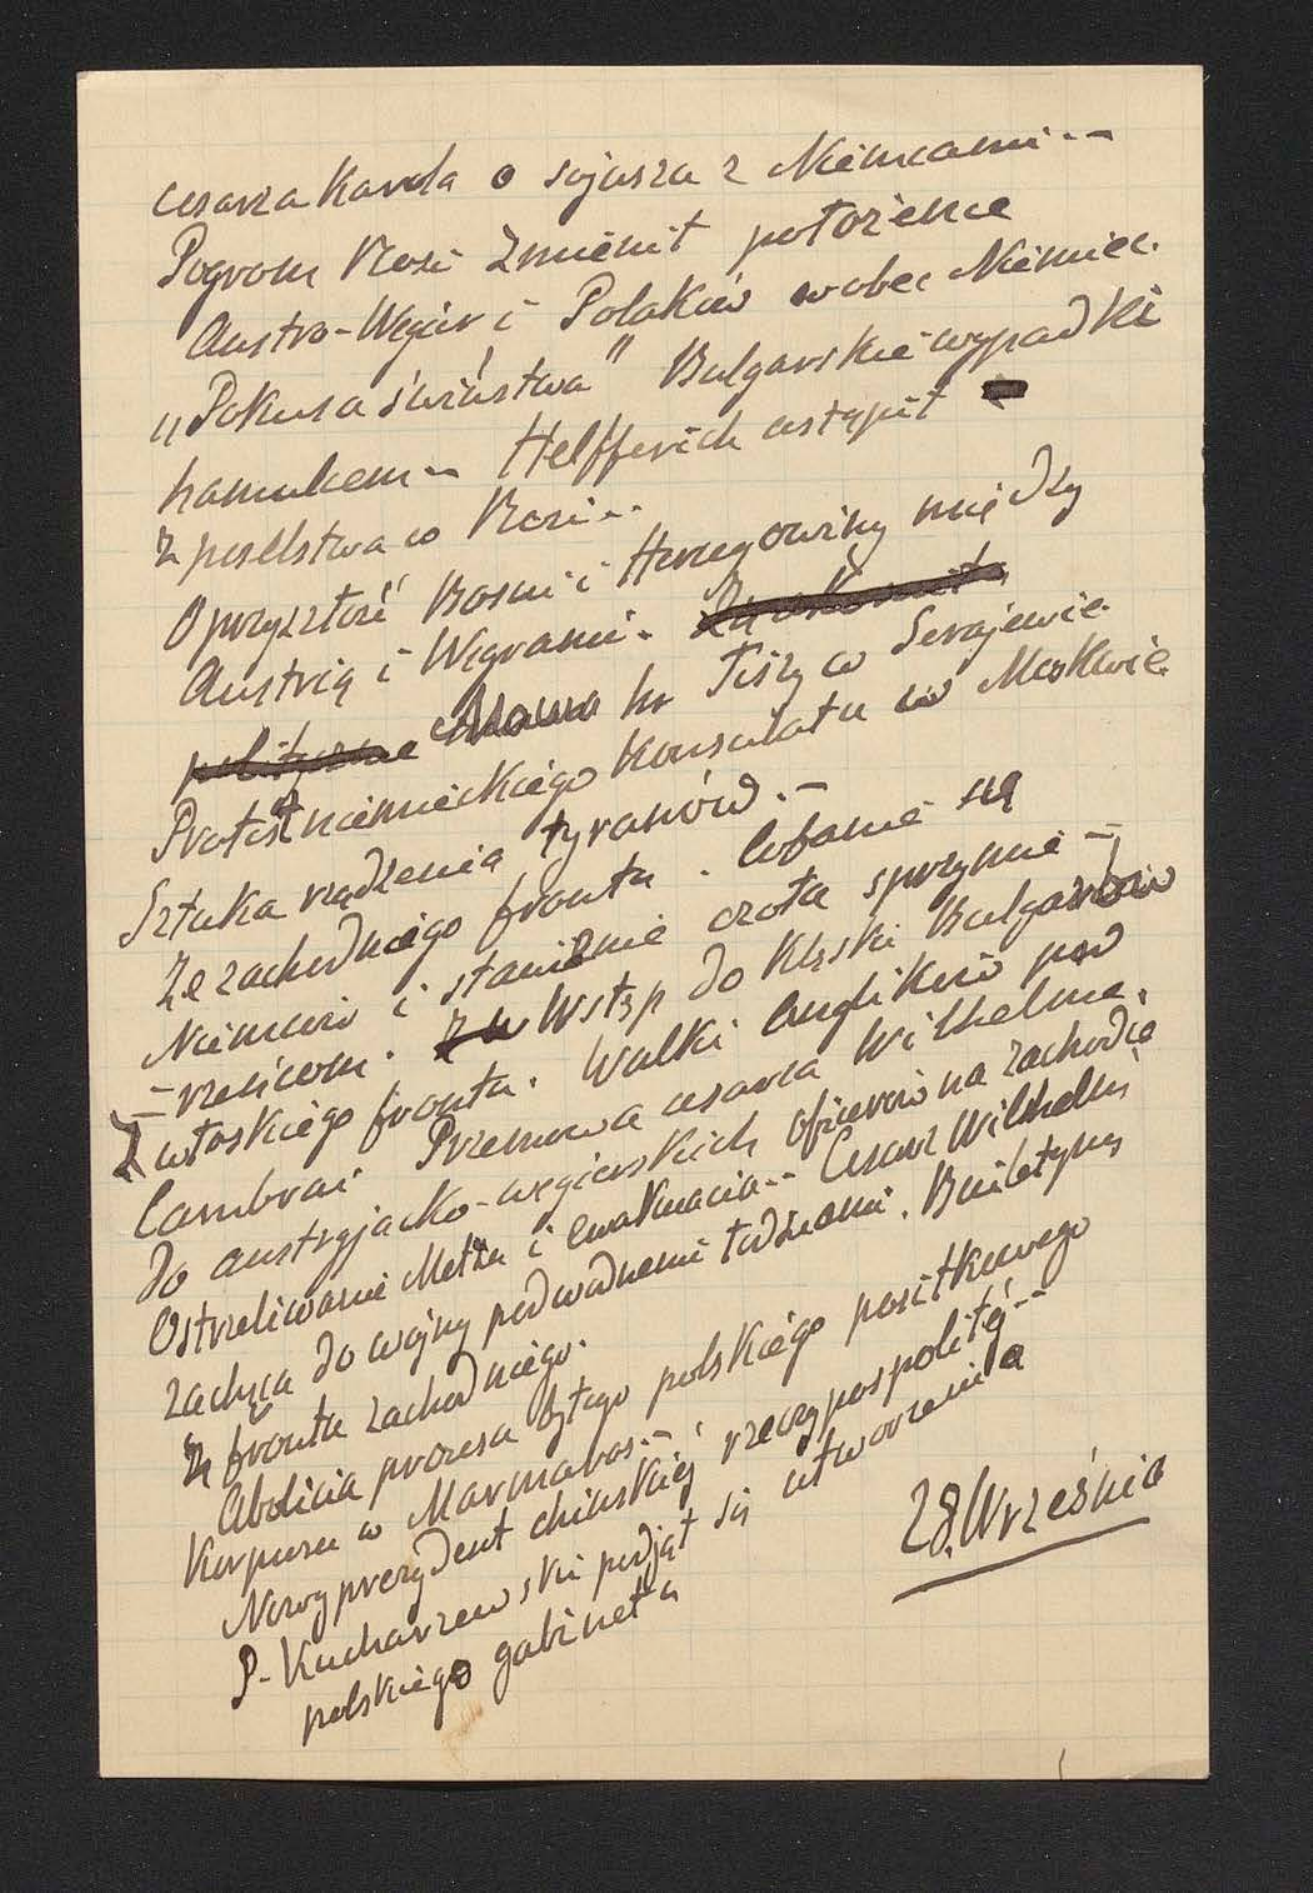 cesarza Karola o sojuszu z Niemcami. –
Pogrom Rosi zmienił położenie
Austro-Węgier i Polaków wobec Niemiec.
„Pokusa świństwa" Bulgarskie wypadki
hamulcem – Helfferich ustąpił
z poselstwa w Rosi..
O przyszłość Bosni i Hercegowiny między
Austrią i Węgrami.
polityczne Mowa hr Tiszy w Serajewie.
Protest niemieckiego Konsulatu w Moskwie
Sztuka rządzenia tyranów. –
Ze zachodniego frontu. Cofanie się
Niemców i stawienie czoła sprzymie –
– rzeńcom. Wstęp do klęski Bulgarów
Z włoskiego frontu. Walki Anglików pod
Cambrai. Przemowa cesarza Wilhelma.
do austryjacko-węgierskich oficerów na zachodzie
Ostrzeliwanie Metzu i ewakuacia. – Cesarz Wilhelm
zachęca do wojny podwodnemi łodziami. Buletyny
z frontu zachodniego.
Abolicia procesu byłego polskiego posiłkowego
Korpusu w Marmaros. –
Nowy prezydent chińskiej rzeczypospolitej –
P. Kucharzewski podjął się utworzenia
polskiego gabinetu
28. Września